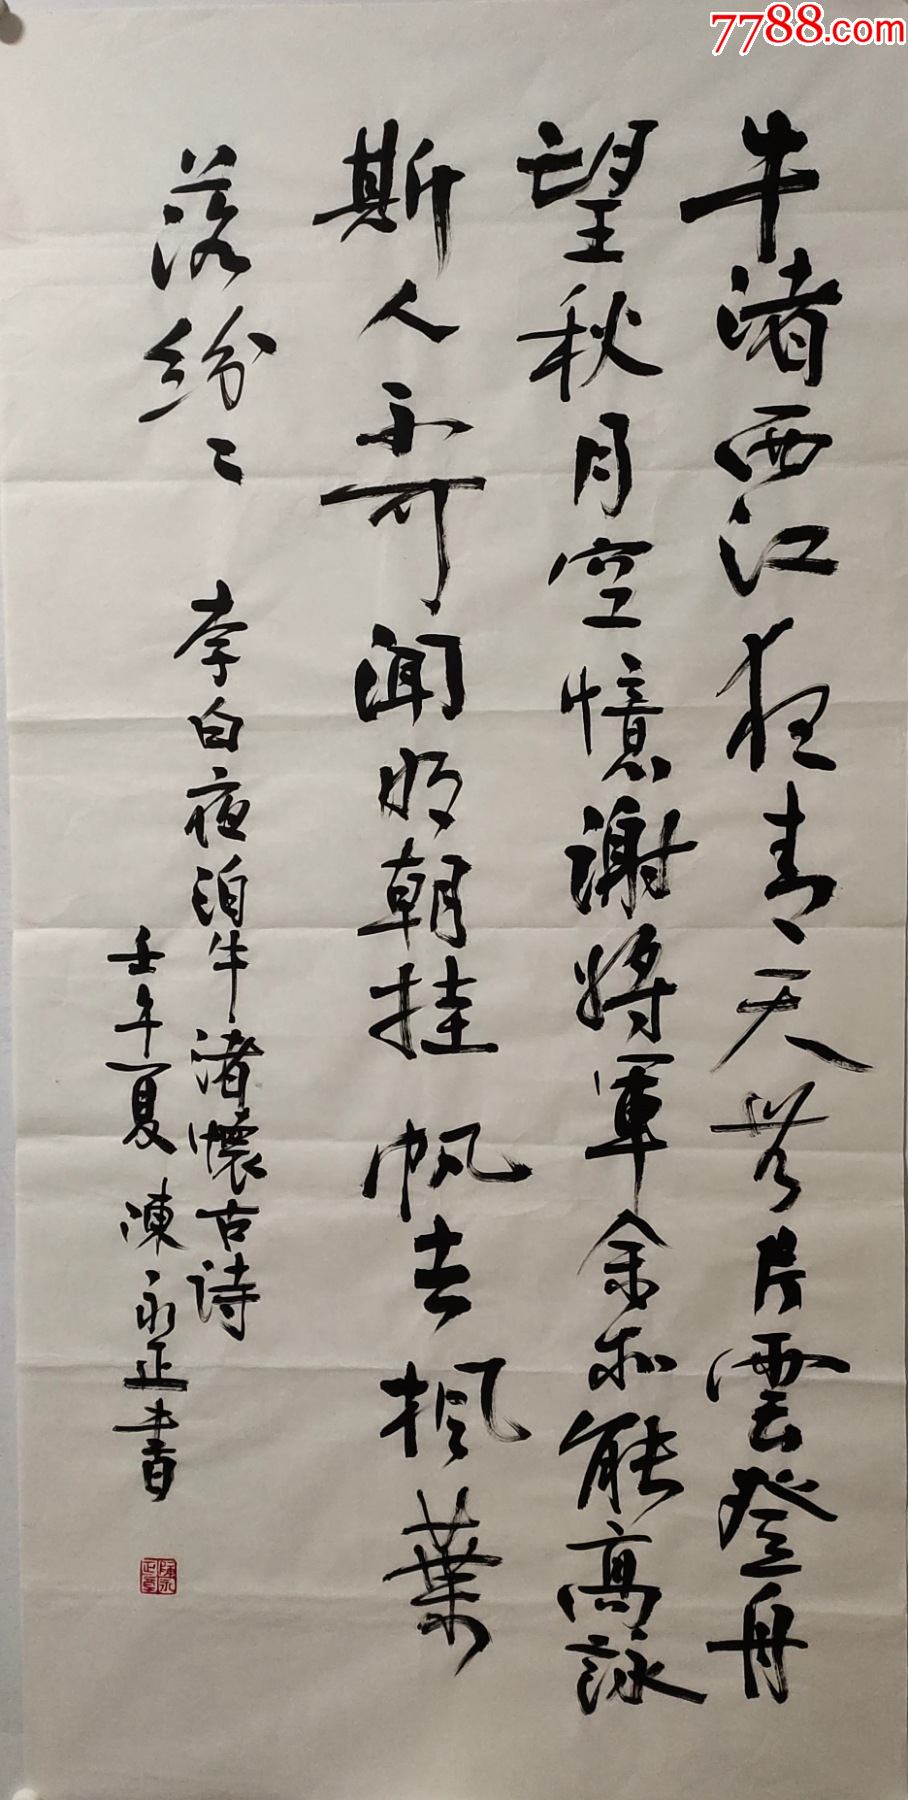 7788.com
牛渚西江夜青天無片雲登舟
望秋月空憶謝將軍余亦能高詠
斯人不可聞明朝挂帆去楓葉
落紛々
李白夜泊牛渚懷古詩
壬午夏陳永正書